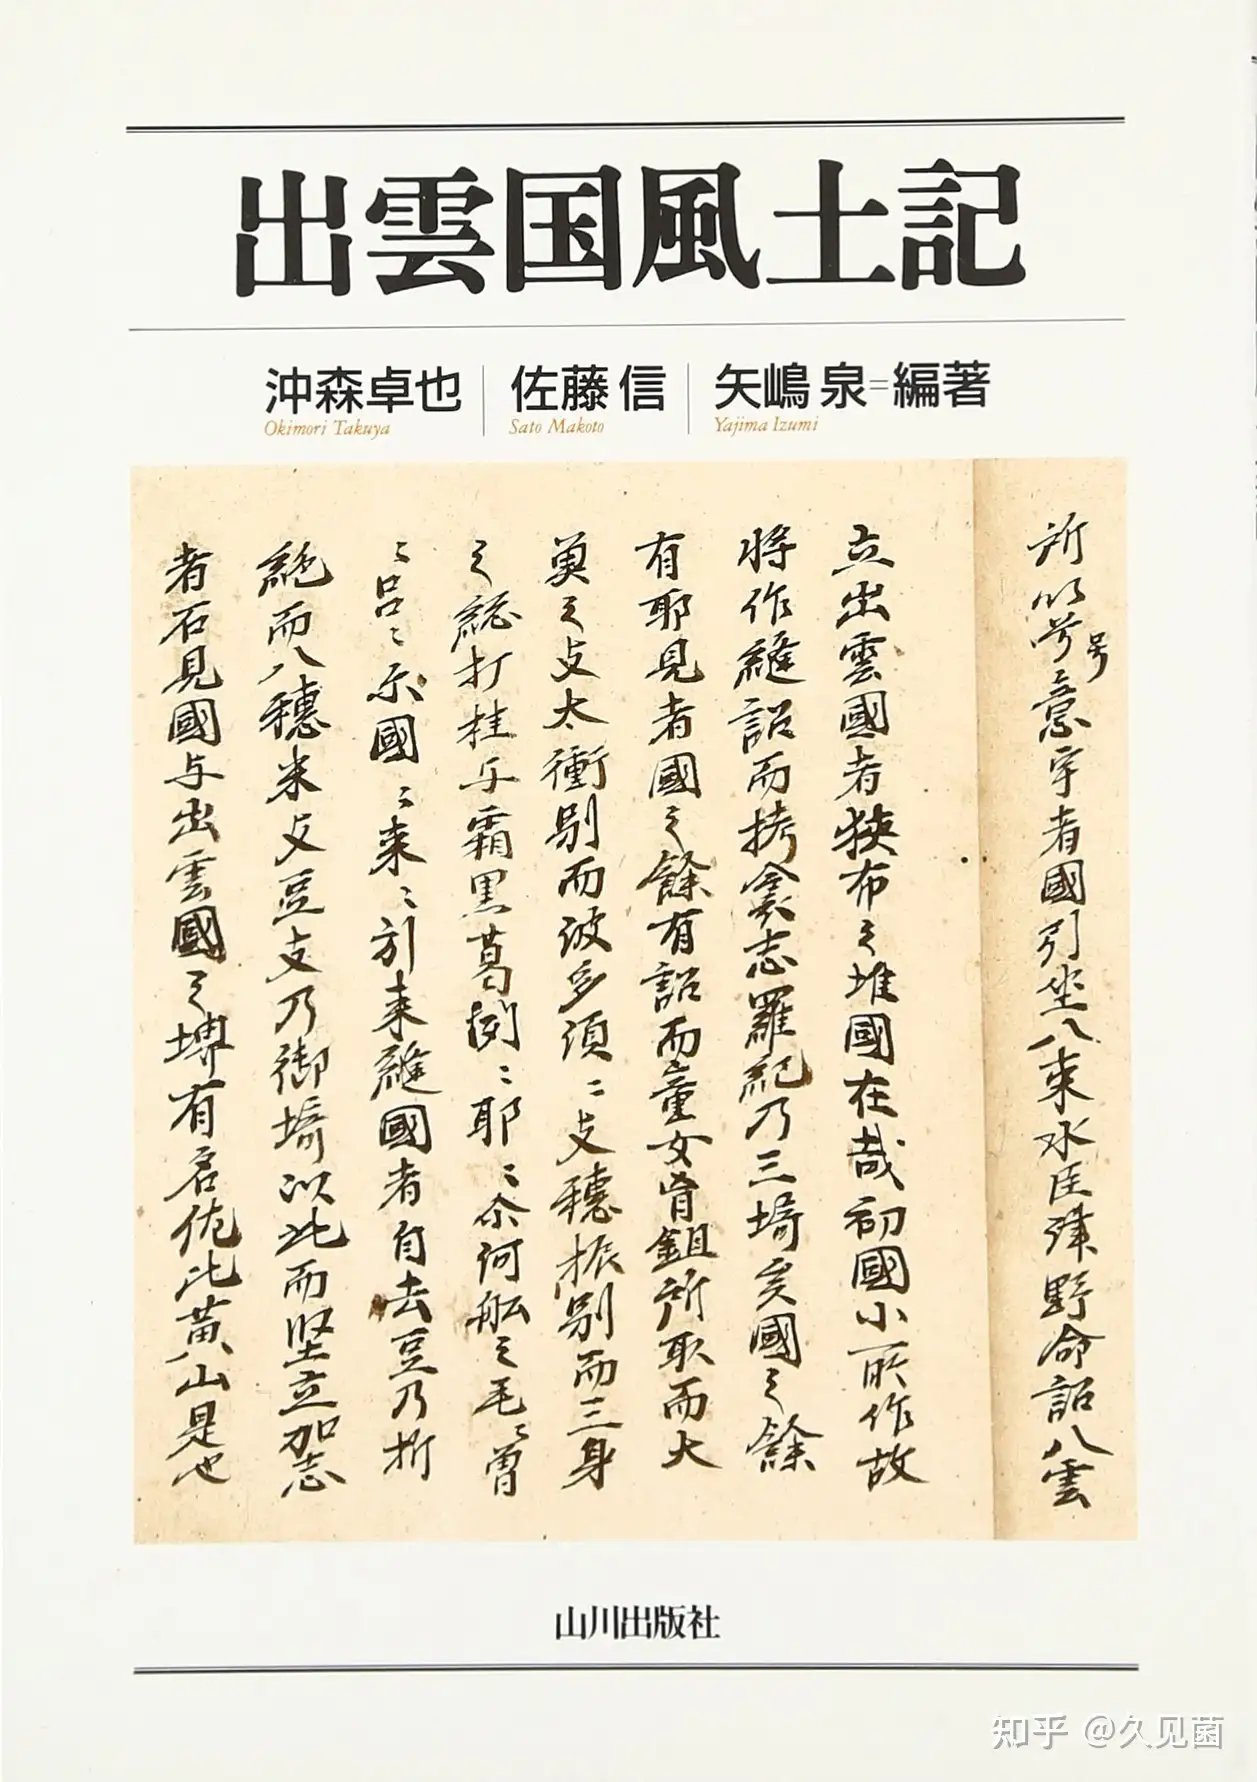 出雲国風土記
沖森卓也 佐藤 信 矢嶋 泉=編著
Okimori Takuya Sato Makoto Yajima Izumi
所以号意宇者國引坐八束水臣津野命詔八雲
号
立出雲國者狭布之堆國在哉初國小所作故
将作縫詔而栲衾志羅紀乃三埼矣國之餘
有耶見者國之餘有詔而童女胷鉏所取而大
奠之支太衝別而波多須ミ支穂振別而三身
之綂打桂与霜黒葛ミ耶ミ尒河舩之毛ミ曽
ミ呂ミ尒國ミ来ミ引来縫國者自去豆乃折
絶而八穂米支豆支乃御埼以此而堅立加志
者石見國与出雲國之堺有名佐比賣山是也
山川出版社
知乎 @久见菌